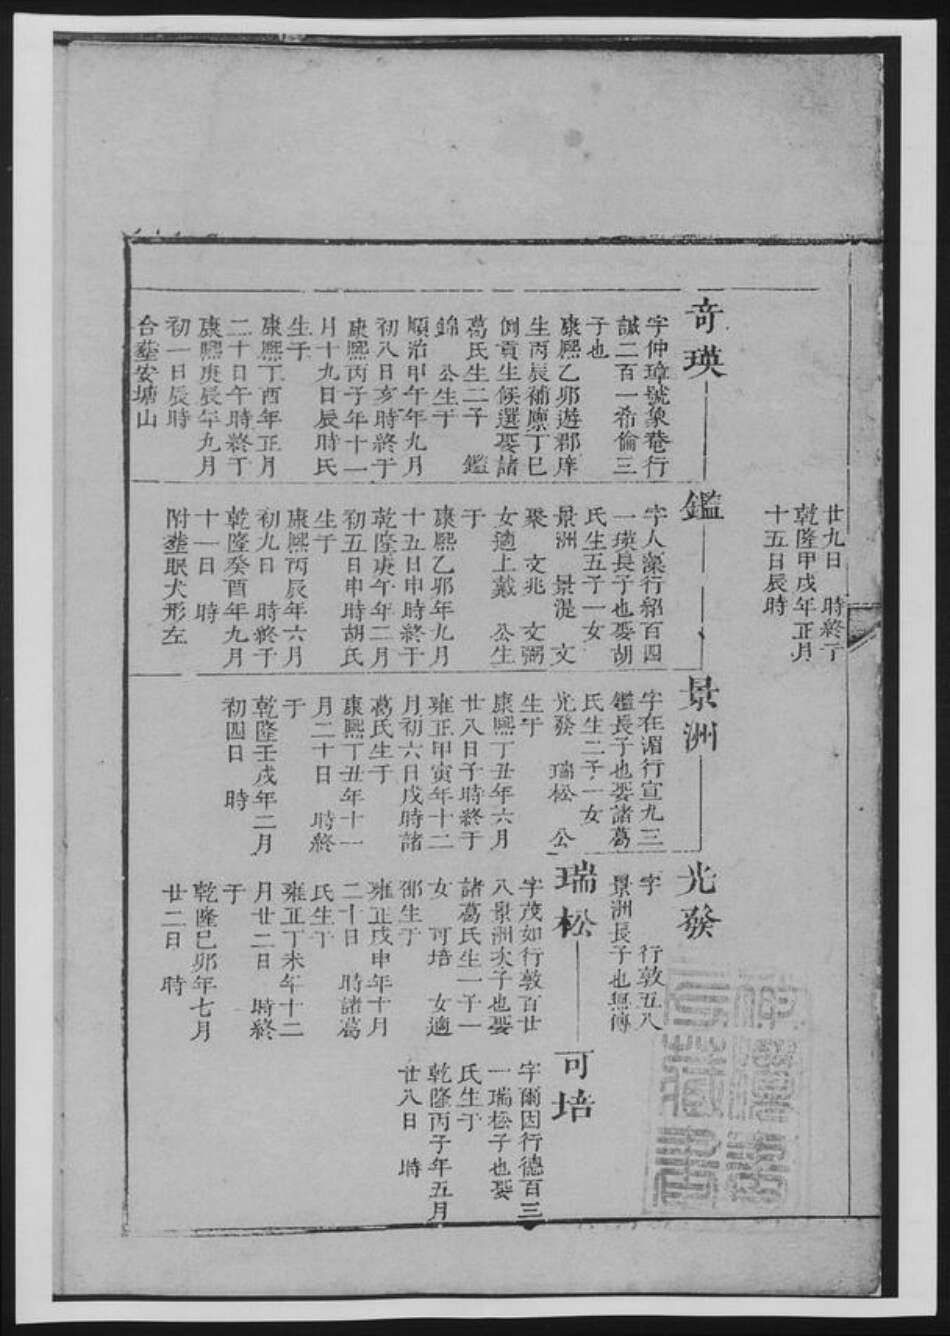 廿九日　時終于
乾隆甲戌年正月
十五日辰時
奇瑛
字仲璋號象巷行
誠二百一希倫三
子也
康熙乙卯遊郡庠
生丙辰補廪丁巳
例貢生候選娶諸
葛氏生二子　鑑
錦　公生于
順治甲午年九月
初八日亥時終于
康熙丙子年十一
月十九日辰時氏
生于
康熙丁酉年正月
二十日午時終于
康熙庚辰年九月
初一日辰時
合塟安塘山
鑑
字人藻行紹百四
一瑛長子也娶胡
氏生五子一女
景洲　景湜　文
聚　文兆　文弼
女適上戴　公生
于
康熙乙卯年九月
十五日申時終于
乾隆庚午年二月
初五日申時胡氏
生于
康熙丙辰年六月
初九日　時終于
乾隆癸酉年九月
十一日　時
附塟眠犬形左
景洲
字在湄行宣九三
鑑長子也娶諸葛
氏生二子一女
光發　瑞松　公
生于
康熙丁丑年六月
廿八日子時終于
雍正甲寅年十二
月初六日戌時諸
葛氏生于
康熙丁丑年十一
月二十日　時終
于
乾隆壬戌年二月
初四日　時
光發
字　行敦五八
景洲長子也無傳
瑞松
字茂如行敦百廿
八景洲次子也娶
諸葛氏生一子一
女　可培　女適
邵生于
雍正戊申年十月
二十日　時諸葛
氏生于
雍正丁未年十二
月廿二日　時終
于
乾隆己卯年七月
廿二日　時
可培
字爾因行德百三
一瑞松子也娶
氏生于
乾隆丙子年五月
廿八日　時